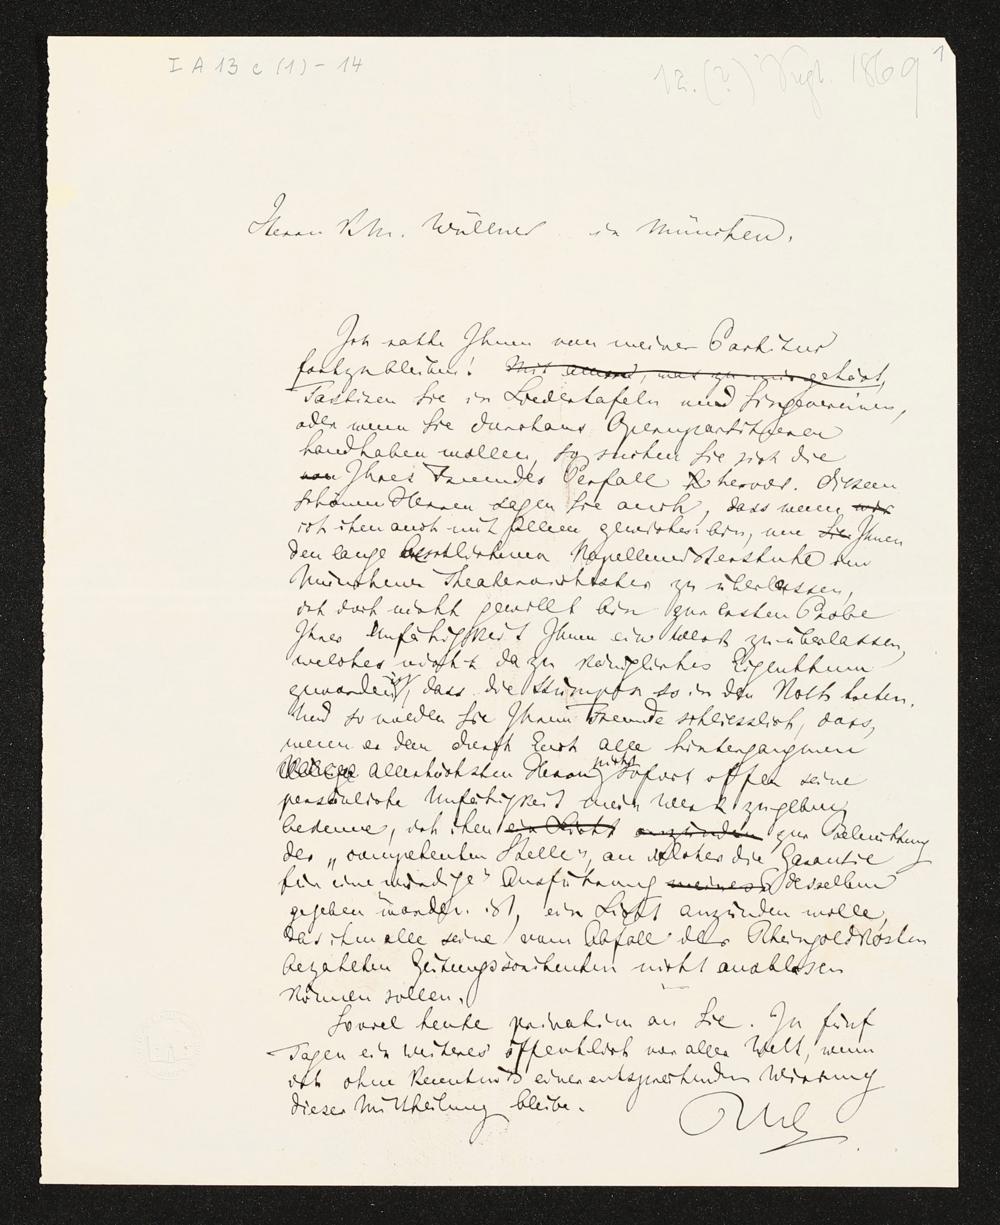 I A 13 c (1) - 14
12. (?) Sept. 1869
1
Herrn KM. Wüllner in München.
Ich rathe Ihnen von meiner Partitur
fortzubleiben! Mit allem, was zu mir gehört,
Taktiren Sie in Liedertafeln und Singevereinen,
oder wenn Sie durchaus Opernpartituren
handhaben wollen, so suchen Sie sich die
von Ihres Freundes Perfall hervor. Diesem
schönen Herren sagen Sie auch, dass wenn wir
ich ihm auch mit Allem gewichen bin, um Sie Ihnen
den lange Kapellmeisterstuhl im
Münchener Theaterorchester zu überlassen,
ich doch nicht gewillt bin zur ersten Probe
Ihrer Unfähigkeit Ihnen ein Werk zu überlassen,
welches nicht dazu königliches Eigenthum
geworden ist, dass die Stümper so in den Koth treten.
Und so melden Sie Ihrem Freunde schliesslich, dass,
wenn er dem durch Euch alle hintergangenen
allerhöchsten Herrn nicht sofort offen seine
persönliche Unfähigkeit mein Werk zu geben
bekenne, ich ihm ein Licht anzünden zur Beleuchtung
der „competenten Stelle", an welcher die Garantie
für eine „würdige" Ausführung meines desselben
gegeben worden ist, ein Licht anzünden wolle,
das ihm alle seine vom Abfall der Rheingoldkosten
bezahlten Zeitungsscribenten nicht ausblasen
können sollen.
Soviel heute privatim an Sie. In fünf
Tagen ein weiteres öffentlich vor aller Welt, wenn
ich ohne Kenntniss einer entsprechenden Wirkung
dieser Mittheilung bleibe.
RW